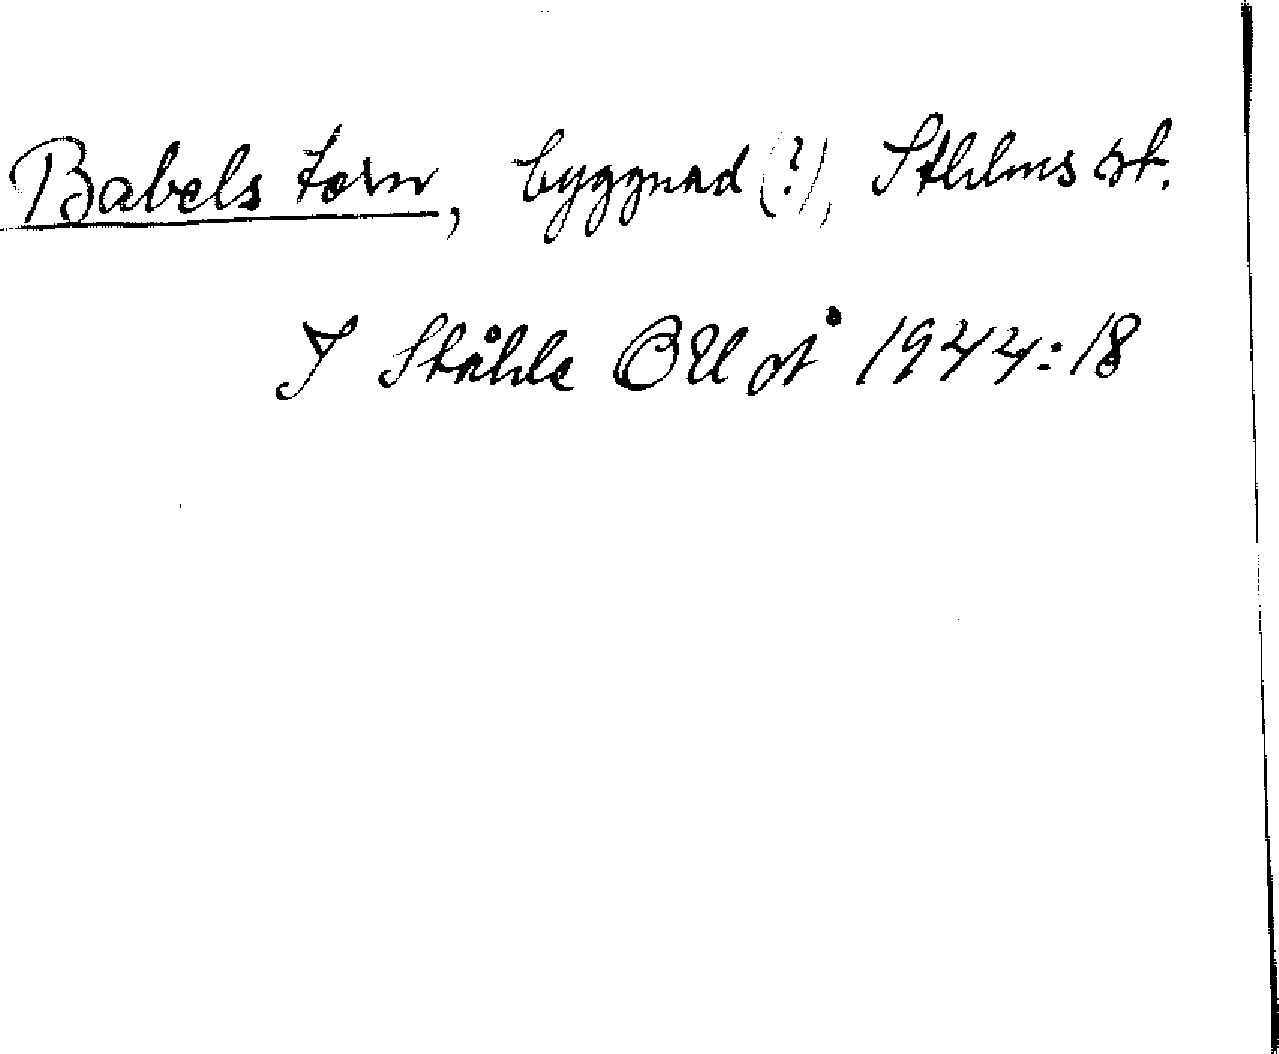 Babels torn, byggnad (?), Sthlms st.
I Ståhle 1944:18